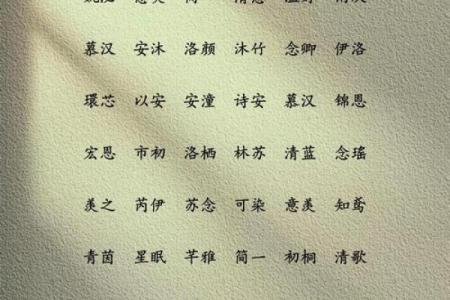 慕汉 安沐 洛颜 沐竹 念卿 伊洛
環芯 以安 安潼 诗安 慕汉 锦恩
宏恩 市初 洛栖 林苏 清蓝 念瑶
羡之 芮伊 苏念 可染 意羡 知鸢
青茵 星眠 芊雅 简一 初桐 清歌